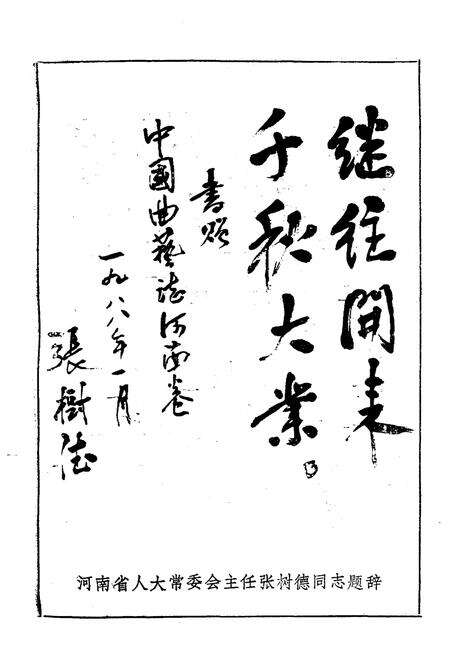 继往開来
千秋大业
書贈
中國曲藝誌河南卷
一九八八年一月
張樹德
河南省人大常委会主任张树德同志题辞